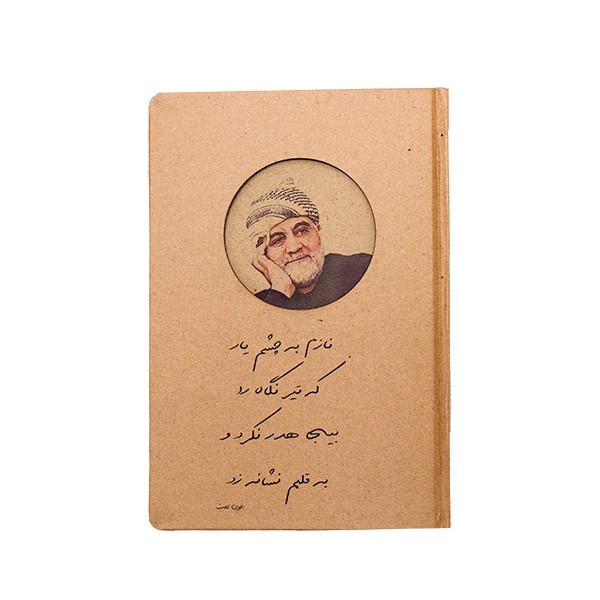 نازم به چشم یار
که تیر نگاه را
بیجا هدر نکرد و
به قلبم نشانه زد